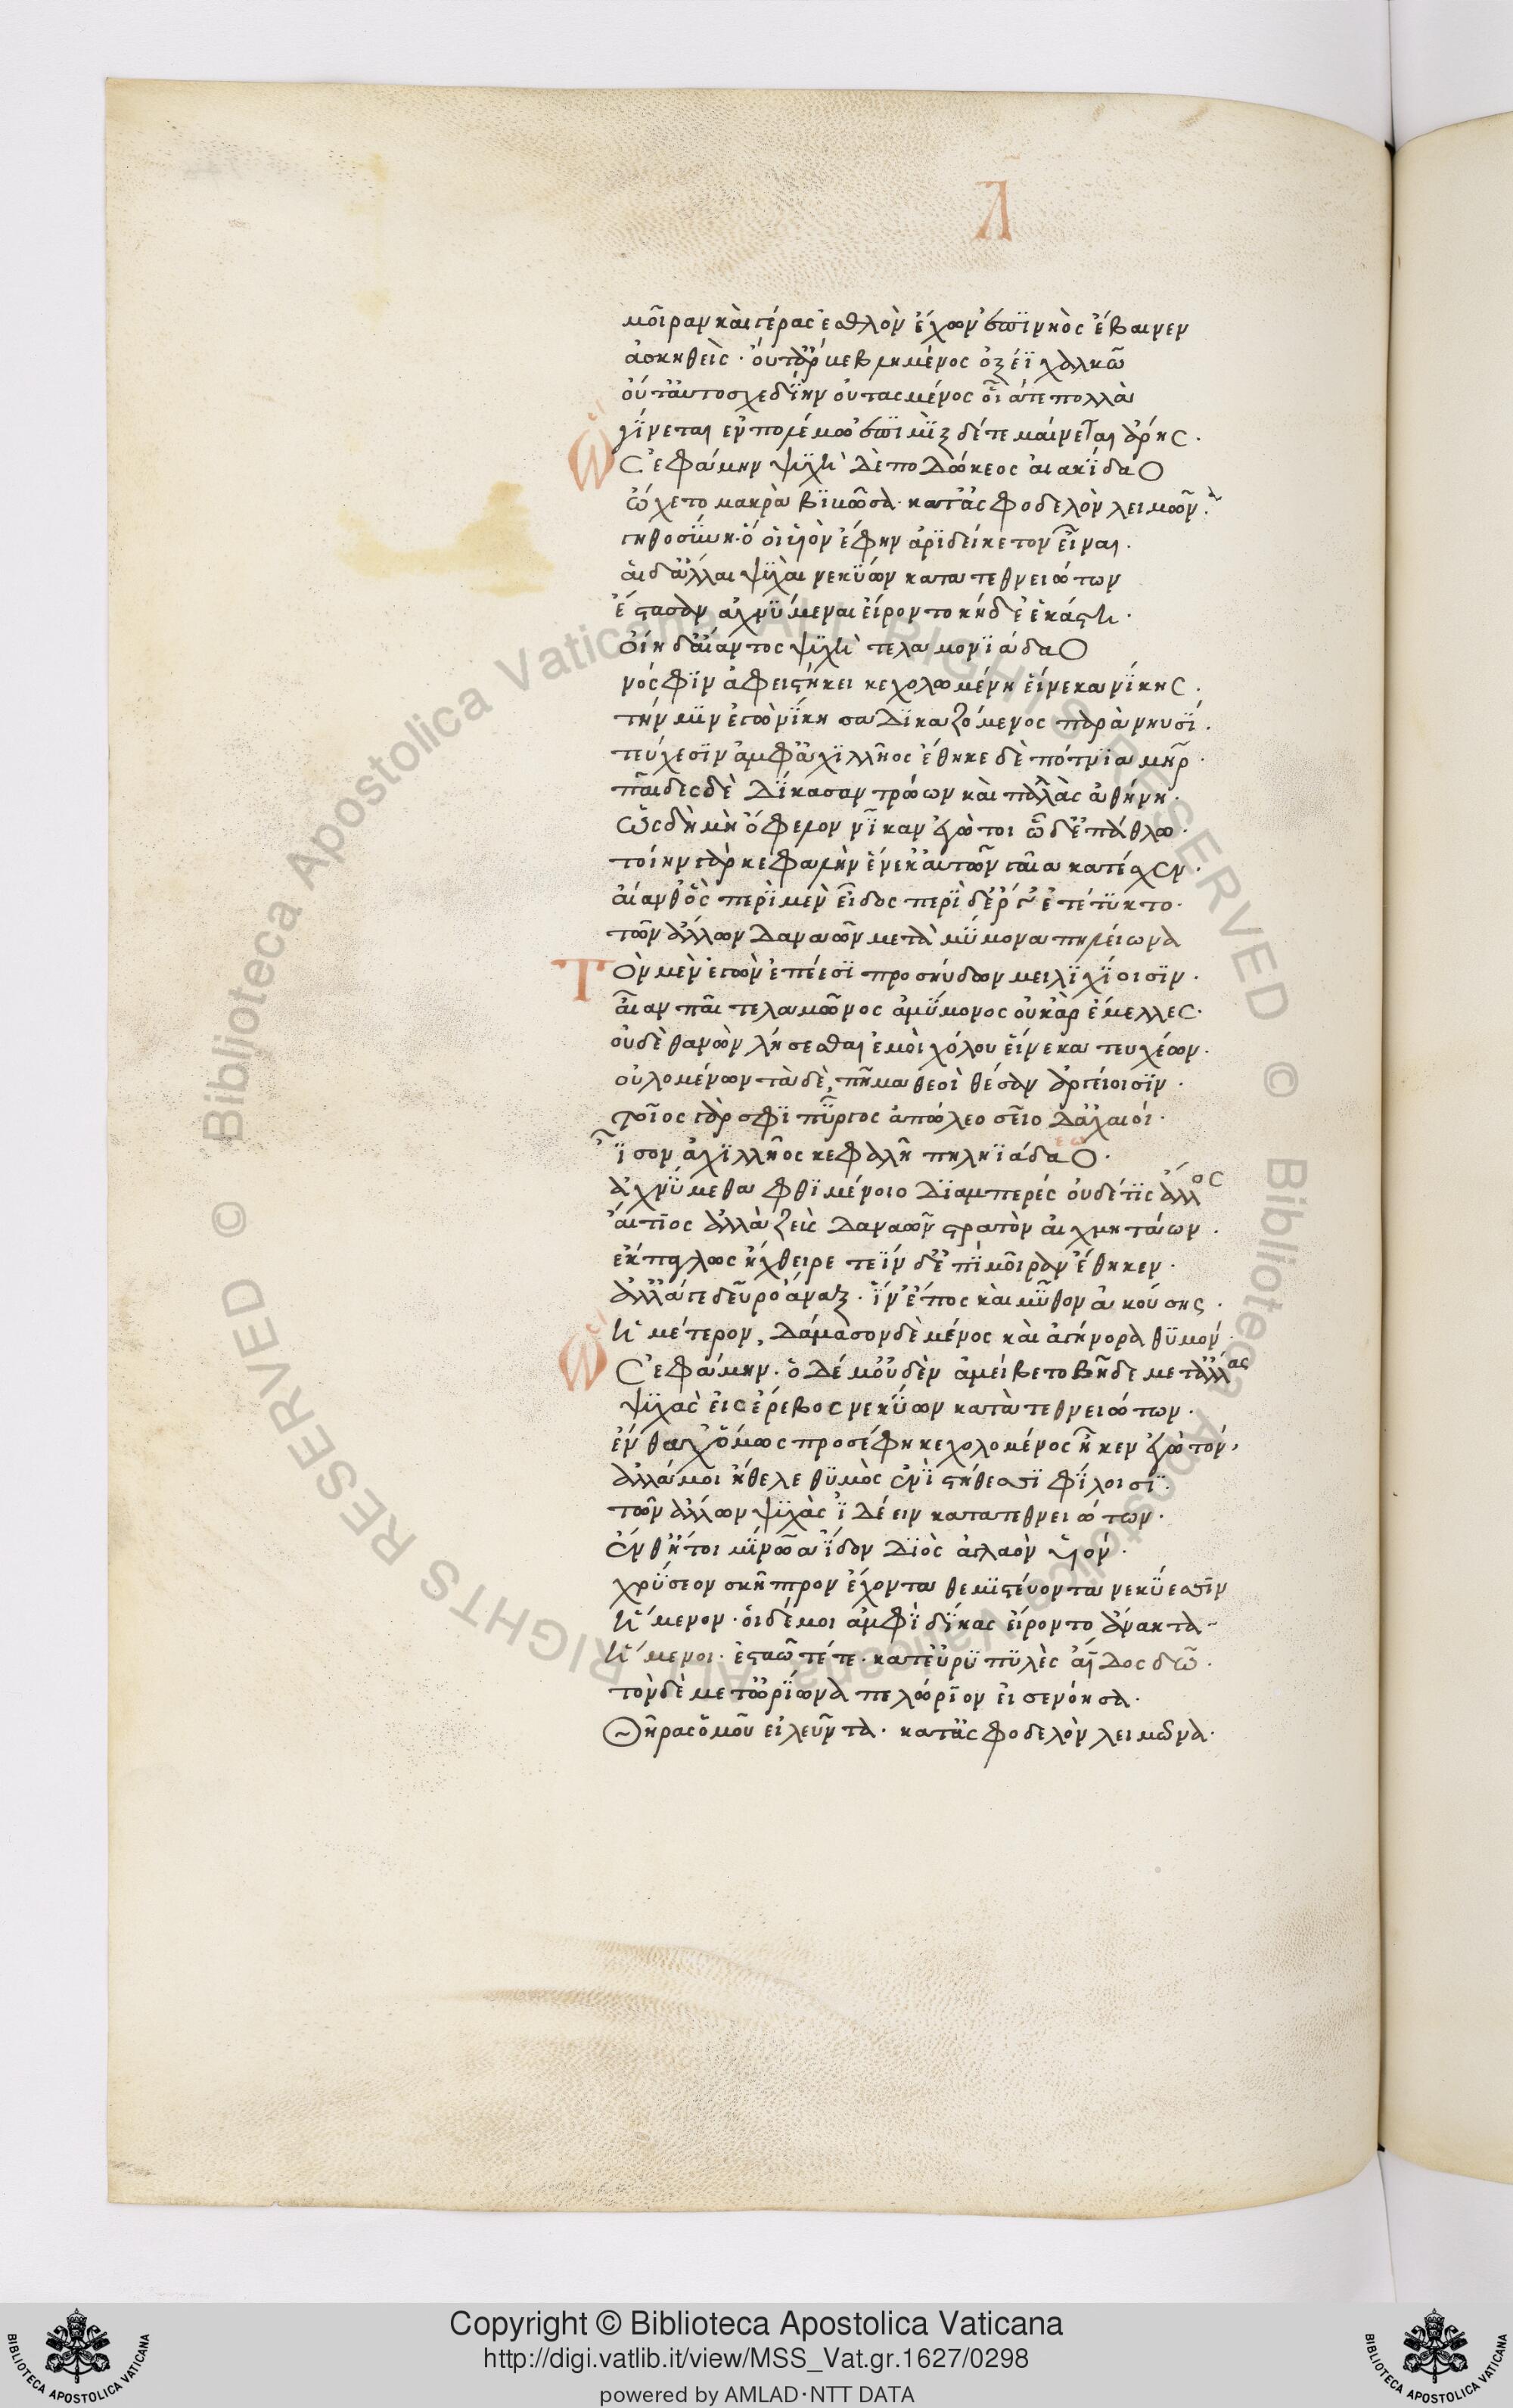 Λ
μοῖραν καὶ γέρας ἐσθλὸν ἔχων ἐπὶ νηὸς ἔβαινεν
ἀσκηθεὶς· οὔτ' ἂρ βεβλημένος ὀξέϊ χαλκῶ
οὔτ' αὐτοσχεδίην οὐτασμένος οἷά τε πολλὰ
γίνεται ἐν πολέμω ἐπιμὶξ δέ τε μαίνεται ἄρης.
Ὣς ἐφάμην ψυχὴ δὲ ποδώκεος αἰακίδαο
ὤχετο μακρὰ βιβῶσα· κατ' ἀσφοδελὸν λειμῶνα
γηθοσύνη· ὅ οἱ υἱὸν ἔφην ἀριδείκετον εἶναι.
αἱ δ' ἄλλαι ψυχαὶ νεκύων κατατεθνειώτων
ἕστασαν ἀχνύμεναι εἴροντο κήδε' ἑκάστη.
οἴη δ' αἴαντος ψυχὴ τελαμονιάδαο
νόσφιν ἀφειστήκει κεχολωμένη εἵνεκα νίκης.
τήν μιν ἐγὼ νίκησα δικαζόμενος παρὰ νηυσί.
τεύχεσιν ἀμφ' ἀχιλλῆος ἔθηκε δὲ πότνια μηρ.
παῖδες δὲ δίκασαν τρώων καὶ παλλὰς ἀθήνη.
ὡς δὴ μὴ ὄφελον νικᾶν τοιῶδ' ἐπ' ἄθλω.
τοίην γὰρ κεφαλὴν ἕνεκ' αὐτῶν γαῖα κατέσχεν.
αἴανθ' ὃς περὶ μὲν εἶδος περὶ δ' ἔργ' ἐτέτυκτο.
τῶν ἄλλων δαναῶν μετ' ἀμύμονα πηλείωνα
Τὸν μὲν ἐγὼν ἐπέεσι προσηύδων μειλιχίοισιν.
αἶαν παῖ τελαμῶνος ἀμύμονος οὐκ ἂρ ἔμελλες.
οὐδὲ θανὼν λήσεσθαι ἐμοὶ χόλου εἵνεκα τευχέων.
οὐλομένων τὰ δὲ πῆμα θεοὶ θέσαν ἀργείοισιν.
τοῖος γὰρ σφι πύργος ἀπώλεο σεῖο δ' ἀχαιοί.
ἶσον ἀχιλλῆος κεφαλῆ πηληϊάδαο.
ἀχνύμεθα φθιμένοιο διαμπερές οὐδέ τις ἄλλος
αἴτιος ἀλλὰ ζεὺς δαναῶν στρατὸν αἰχμητάων.
ἐκπάγλως ἤχθειρε τεῒν δ' ἐπὶ μοῖραν ἔθηκεν.
ἀλλ' ἄγε δεῦρο ἄναξ. ἵν' ἔπος καὶ μῦθον ἀκούσης.
ἡμέτερον, δάμασον δὲ μένος καὶ ἀγήνορα θυμόν.
Ὣς ἐφάμην. ὁ δέ μ' οὐδὲν ἀμείβετο βῆ δὲ μετ' ἄλλας
ψυχὰς εἰς ἔρεβος νεκύων κατατεθνειώτων.
ἔνθα χ' ὅμως προσέφη κεχολομένος ἤ κεν ἐγὼ τόν,
ἀλλά μοι ἤθελε θυμὸς ἐνὶ στήθεσσι φίλοισι.
τῶν ἄλλων ψυχὰς ἰδέειν κατατεθνειώτων.
ἔνθ' ἤτοι μίνωα ἴδον διὸς ἀγλαὸν υἱόν.
χρύσεον σκῆπτρον ἔχοντα θεμιστεύοντα νεκύεσσιν
ἥμενον. οἱ δέ μιν ἀμφὶ δίκας εἴροντο ἄνακτα
ἥμενοι. ἑσταῶτέ τε. κατ' εὐρυπυλὲς ἄϊδος δῶ.
τὸν δὲ μετ' ὠρίωνα πελώριον εἰσενόησα.
Θῆρας ὁμοῦ εἰλεῦντα. κατ' ἀσφοδελὸν λειμῶνα.
Copyright © Biblioteca Apostolica Vaticana
http://digi.vatlib.it/view/MSS_Vat.gr.1627/0298
powered by AMLAD·NTT DATA